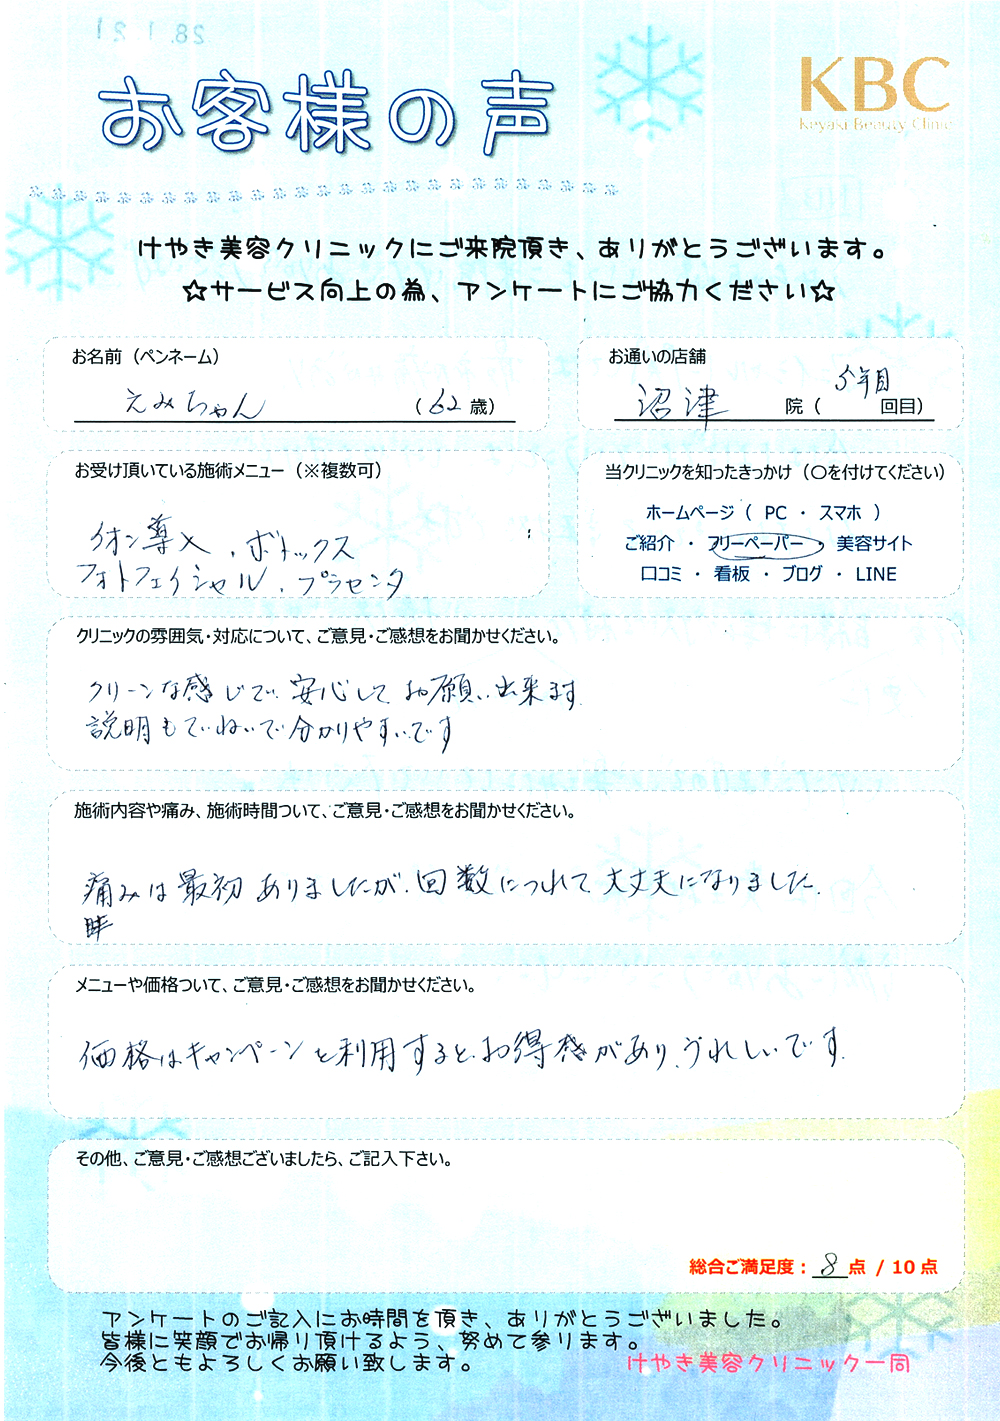 お客様の声
KBC
Keyaki Beauty Clinic
けやき美容クリニックにご来院頂き、ありがとうございます。
☆サービス向上の為、アンケートにご協力ください☆
お名前（ペンネーム）
えみちゃん （62歳）
お通いの店舗
沼津 院（5年目 回目）
お受け頂いている施術メニュー（※複数可）
イオン導入、ボトックス
フォトフェイシャル、プラセンタ
当クリニックを知ったきっかけ（〇を付けてください）
ホームページ（ PC ・ スマホ ）
ご紹介 ・ フリーペーパー ・ 美容サイト
口コミ ・ 看板 ・ ブログ ・ LINE
クリニックの雰囲気・対応について、ご意見・ご感想をお聞かせください。
クリーンな感じで、安心してお願い出来ます
説明もていねいで分かりやすいです
施術内容や痛み、施術時間ついて、ご意見・ご感想をお聞かせください。
痛みは最初ありましたが、回数につれて大丈夫になりました。
メニューや価格ついて、ご意見・ご感想をお聞かせください。
価格はキャンペーンを利用すると、お得感があり、うれしいです。
その他、ご意見・ご感想ございましたら、ご記入下さい。
総合ご満足度：8点 / 10点
アンケートのご記入にお時間を頂き、ありがとうございました。
皆様に笑顔でお帰り頂けるよう、努めて参ります。
今後ともよろしくお願い致します。
けやき美容クリニック一同